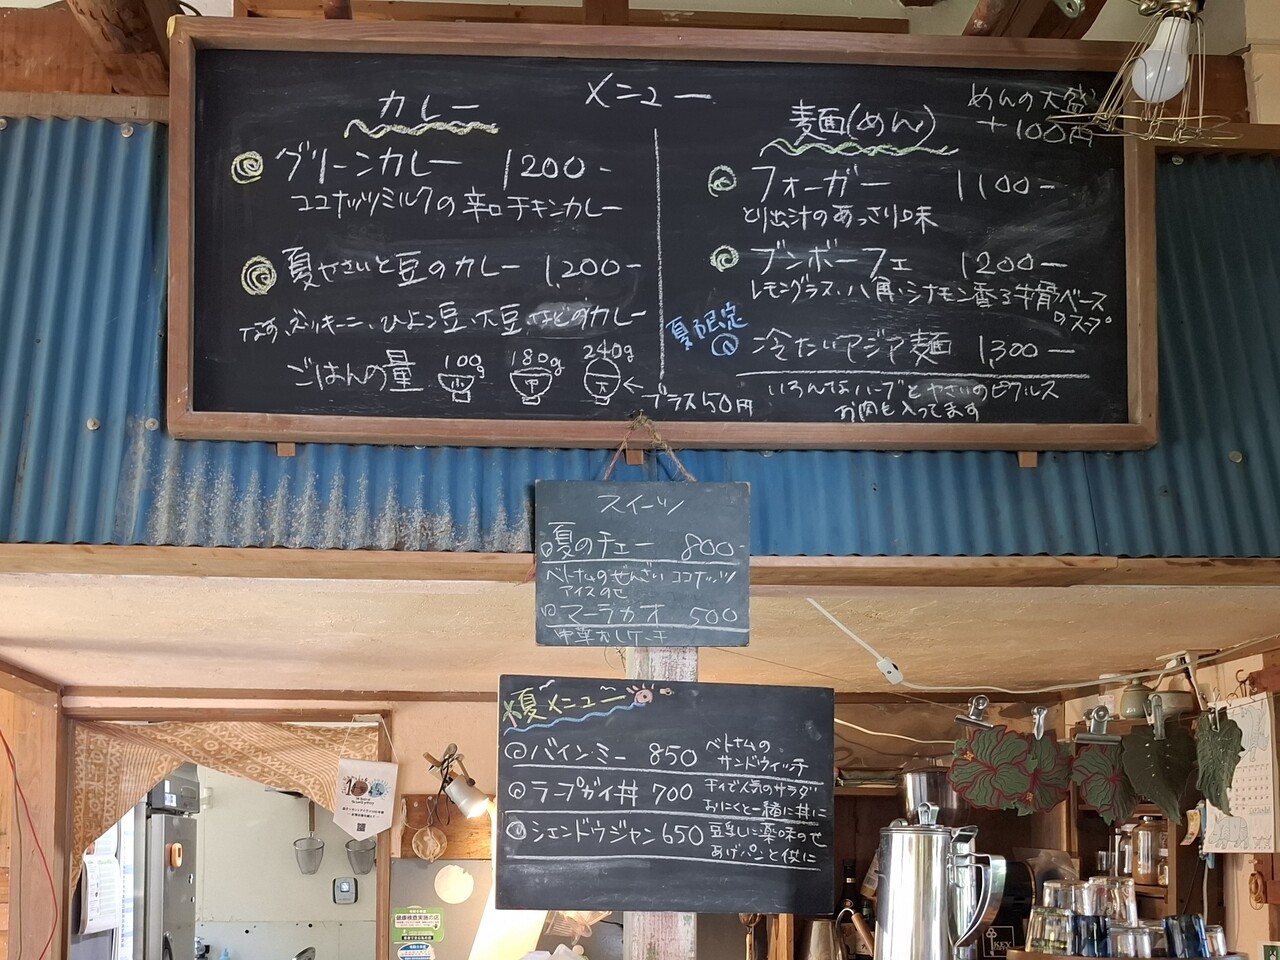 メニュー
カレー
グリーンカレー 1200-
ココナッツミルクの辛口チキンカレー
夏やさいと豆のカレー 1,200-
なす、ズッキーニ、ひよこ豆、大豆、などのカレー
ごはんの量 小 100g 中 180g 大 240g ← プラス50円
麺(めん)
めんの大盛
+100円
フォーガー 1100-
とり出汁のあっさり味
ブンボーフェ 1200-
レモングラス、八角、シナモン香る牛骨ベース
のスープ
夏限定
冷たいアジア麺 1,300-
いろんなハーブとやさいのピクルス
お肉も入ってます
スイーツ
夏のチェー 800-
ベトナムのぜんざい ココナッツ
アイスのせ
マーラカオ 500
中華むしケーキ
夏メニュー
バインミー 850 ベトナムの
サンドウィッチ
ラープガイ丼 700 タイで人気のサラダ
おにくと一緒に丼に
シェンドウジャン 650 豆乳に薬味のせ
あげパンと供に
KEY